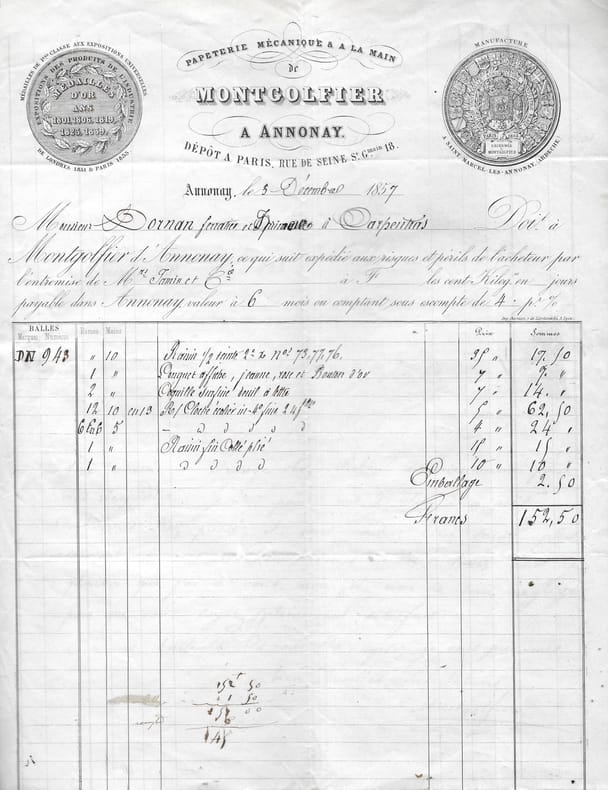 PAPETERIE MÉCANIQUE & A LA MAIN
de
MONTGOLFIER
A ANNONAY.
DÉPÔT A PARIS, RUE DE SEINE St. Gmain 18.
MÉDAILLES DE 1re CLASSE AUX EXPOSITIONS UNIVERSELLES
EXPOSITIONS DES PRODUITS DE L'INDUSTRIE
MÉDAILLES
D'OR
ANS
1801.1806.1819.
1825.1839.
DE LONDRES 1851 & PARIS 1855
MANUFACTURE
A SAINT MARCEL-LES-ANNONAY, ARDÈCHE.
Annonay, le 5 Décembre 1857
Monsieur Dornan à Carpentras Doit à
Montgolfier d'Annonay, ce qui suit expédié aux risques et périls de l'acheteur par
l'entremise de Mrs Jamin et Cie à F les cent Kilog. en jours
payable dans Annonay, valeur à 6 mois ou comptant sous escompte de 4 p. %
BALLES Rames Mains Prix Sommes
Marques Numéros
DN 943 " 10 Raisin 1/2 teinte 2e Nos 73, 77, 76. 35 " 17. 50
1 " affiche, jaune, rose et Bouton d'or 7 "
2 " Coquille surfine deuil à lettre 7 " 14. "
12 10 en 13 5 " 62, 50
6 5 4 " 24 "
1 " Raisin fin Collé plié 15 " 15 "
1 " 10 " 10 "
Emballage 2. 50
Francs 152, 50
152 50
1 50
151 00
6
145